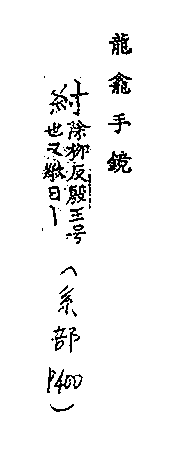 龍龕手鏡
紂除柳反殷王号
也又緧曰丨
(糸部
P400)